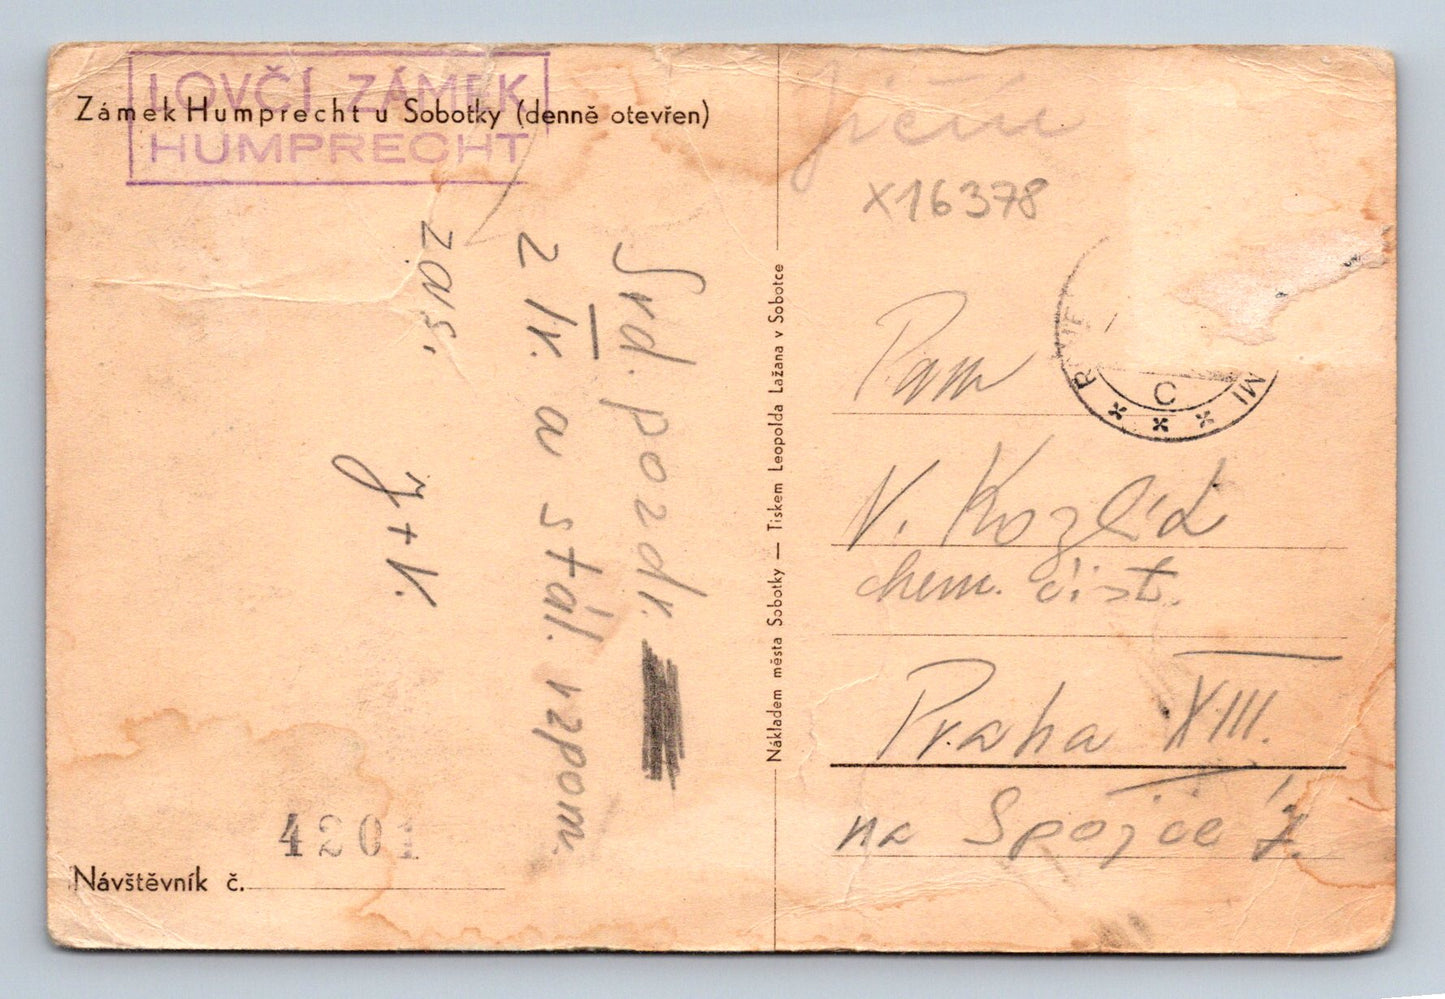 LOVČÍ ZÁMEK
HUMPRECHT
Zámek Humprecht u Sobotky (denně otevřen)
Srd. pozdr.
a stál. vzpom.
J+V.
4201
Návštěvník č.
Nákladem města Sobotky — Tiskem Leopolda Lažana v Sobotce
Jičín
X16378
C
Pan
V. Kozlík
chem. čist.
Praha XIII.
na Spojce 7.